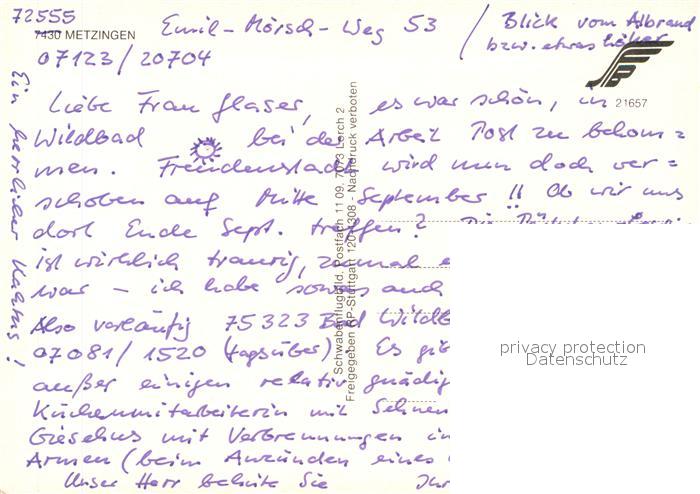 72555
7430 METZINGEN
Emil-Mörsch-Weg 53
07123/20704
Blick vom Albrand
bzw. etwas höher
21657
Ein herrlicher Kaktus!
Liebe Frau Glaser, es war schön, in
Wildbad bei der Arbeit Post zu bekom=
men. Freudenstadt wird nun doch ver=
schoben auf Mitte September!! Ob wir uns
dort Ende Sept. treffen?
ist wirklich traurig, zumal
war – ich habe sowas auch
Also vorläufig 75323 Bad Wildb
07081/1520 (tagsüber). Es gib
außer einigen relativ gnädig
Küchenmitarbeiterin mit Sehnen
mit Verbrennungen in
Armen (beim Anzünden eines
Unser Herr behüte Sie Ihr
Schwabenflugbild, Postfach 11 09, 7073 Lorch 2
Freigegeben RP-Stuttgart 120/1308 - Nachdruck verboten
privacy protection
Datenschutz